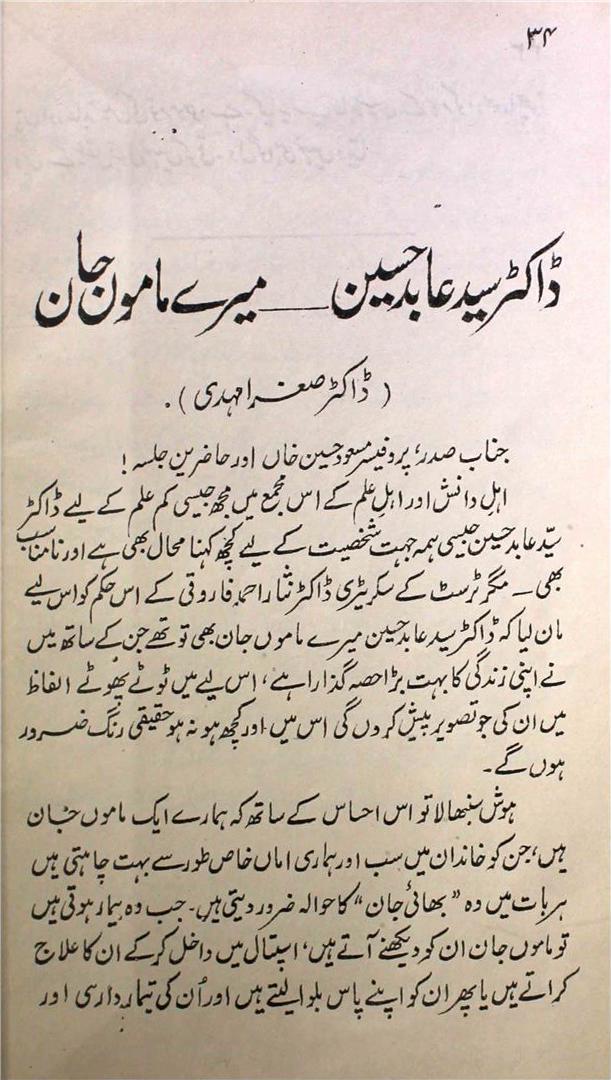 ۳۴
ڈاکٹر سید عابد حسین ــــ میرے ماموں جان
(ڈاکٹر صغرا مہدی).
جناب صدر، پروفیسر مسعود حسین خاں اور حاضرین جلسہ!
اہل دانش اور اہل علم کے اس مجمع میں مجھ جیسی کم علم کے لیے ڈاکٹر
سیّد عابد حسین جیسی ہمہ جہت شخصیت کے لیے کچھ کہنا محال بھی ہے اور نامناسب
بھی ۔ مگر ٹرسٹ کے سکریٹری ڈاکٹر نثار احمد فاروقی کے اس حکم کو اس لیے
مان لیا کہ ڈاکٹر سید عابد حسین میرے ماموں جان بھی تو تھے جن کے ساتھ میں
نے اپنی زندگی کا بہت بڑا حصہ گذارا ہے، اس لیے میں ٹوٹے پھوٹے الفاظ
میں ان کی جو تصویر پیش کروں گی اس میں اور کچھ ہو نہ ہو حقیقی رنگ ضرور
ہوں گے۔
ہوش سنبھالا تو اس احساس کے ساتھ کہ ہمارے ایک ماموں جان
ہیں، جن کو خاندان میں سب اور ہماری اماں خاص طور سے بہت چاہتی ہیں
ہر بات میں وہ "بھائی جان" کا حوالہ ضرور دیتی ہیں۔ جب وہ بیمار ہوتی ہیں
تو ماموں جان ان کو دیکھنے آتے ہیں، اسپتال میں داخل کر کے ان کا علاج
کراتے ہیں یا پھر ان کو اپنے پاس بلوا لیتے ہیں اور اُن کی تیمارداری اور